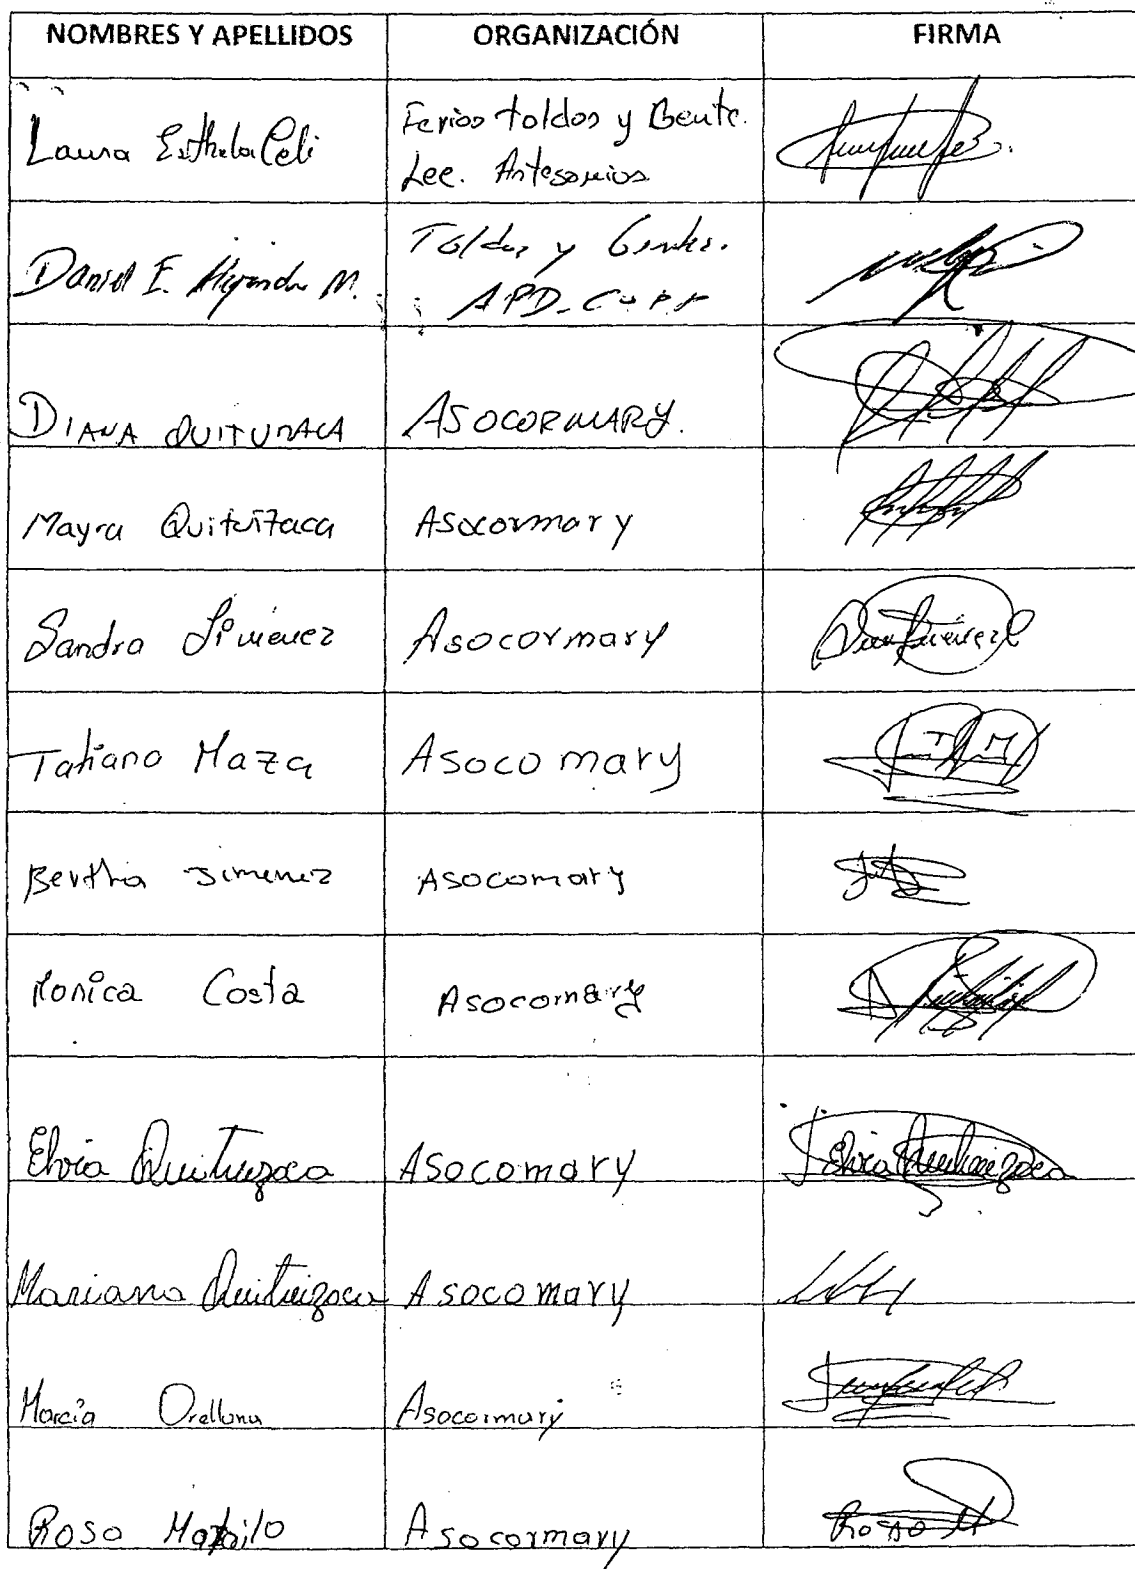 NOMBRES Y APELLIDOS ORGANIZACIÓN FIRMA
Laura Esthela Celi Ferias toldos y Gente.
Lee. Artesanias
Daniel E. M. Toldos y Gentes.
APD-
DIANA QUITUIZACA ASOCORMARY.
Mayra Quituizaca Asocormary
Sandra Jimenez Asocormary
Tatiana Maza Asocomary
Bertha Jimenez Asocomary
Monica Costa Asocomary
Elvia Quituizaca Asocomary Elvia Quituizaca
Mariana Quituizaca Asocomary
Marcia Orellana Asocormary
Rosa Asocormary